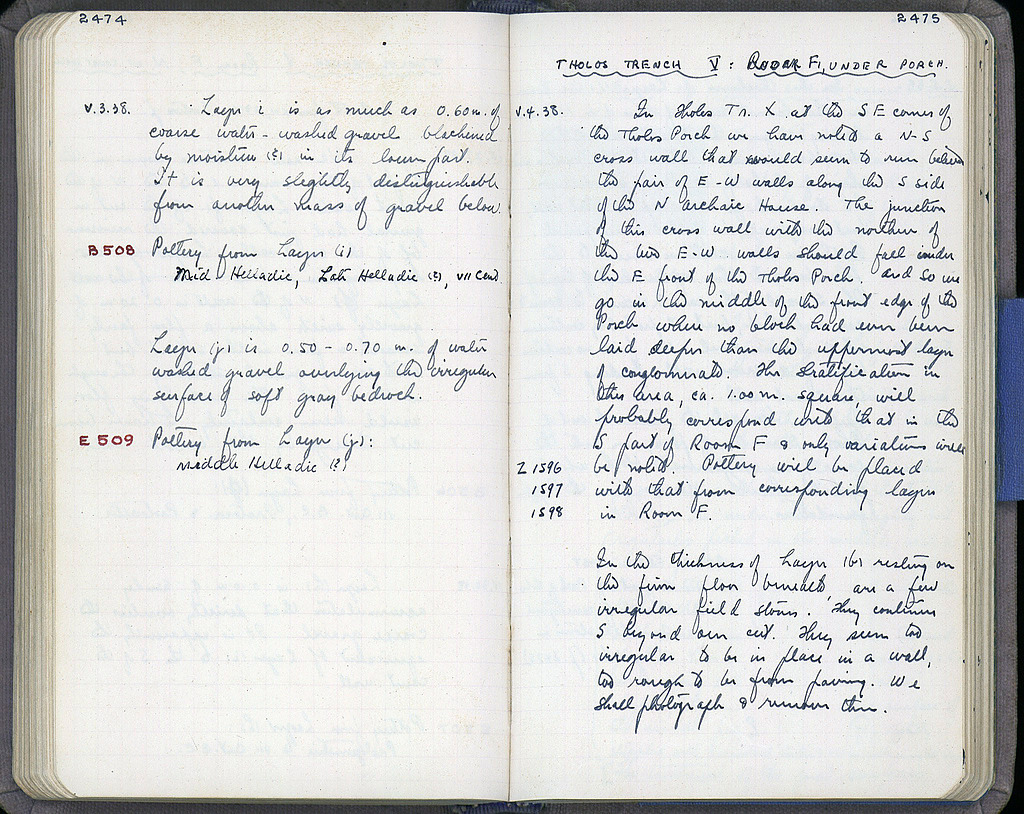 2474
V.3.38. Layer i is as much as 0.60m. of
coarse water-washed gravel blackened
by moisture (?) in its lower part.
It is very slightly distinguishable
from another mass of gravel below.
B 508 Pottery from Layer (i)
Mid Helladic, Late Helladic (?), VII Cent
Layer (j) is 0.50 - 0.70 m. of water
washed gravel overlying the irregular
surface of soft gray bedrock.
E 509 Pottery from Layer (j):
Middle Helladic (?)
2475
THOLOS TRENCH V: ROOM F1, UNDER PORCH.
V.4.38. In Tholos Tr. X at the SE corner of
the Tholos Porch we have noted a N-S
cross wall that would seem to run between
the pair of E-W walls along the S side
of the N archaic House. The junction
of this cross wall with the norther of
the two E-W walls should fall under
the E front of the Tholos Porch. And so we
go in the middle of the front edge of the
Porch where no block had ever been
laid deeper than the uppermost layer
of conglomerate. The stratification in
this area, ca. 1.00 m. square, will
probably correspond with that in the
S part of Room F & only variations will
Z 1596 be noted. Pottery will be placed
1597 with that from corresponding layers
1598 in Room F.
In the thickness of Layer (b) resting on
the firm floor beneath are a few
irregular field stones. They continue
S beyond our cut. They seem too
irregular to be in place in a wall,
too rough to be from paving. We
shall photograph & remove them.